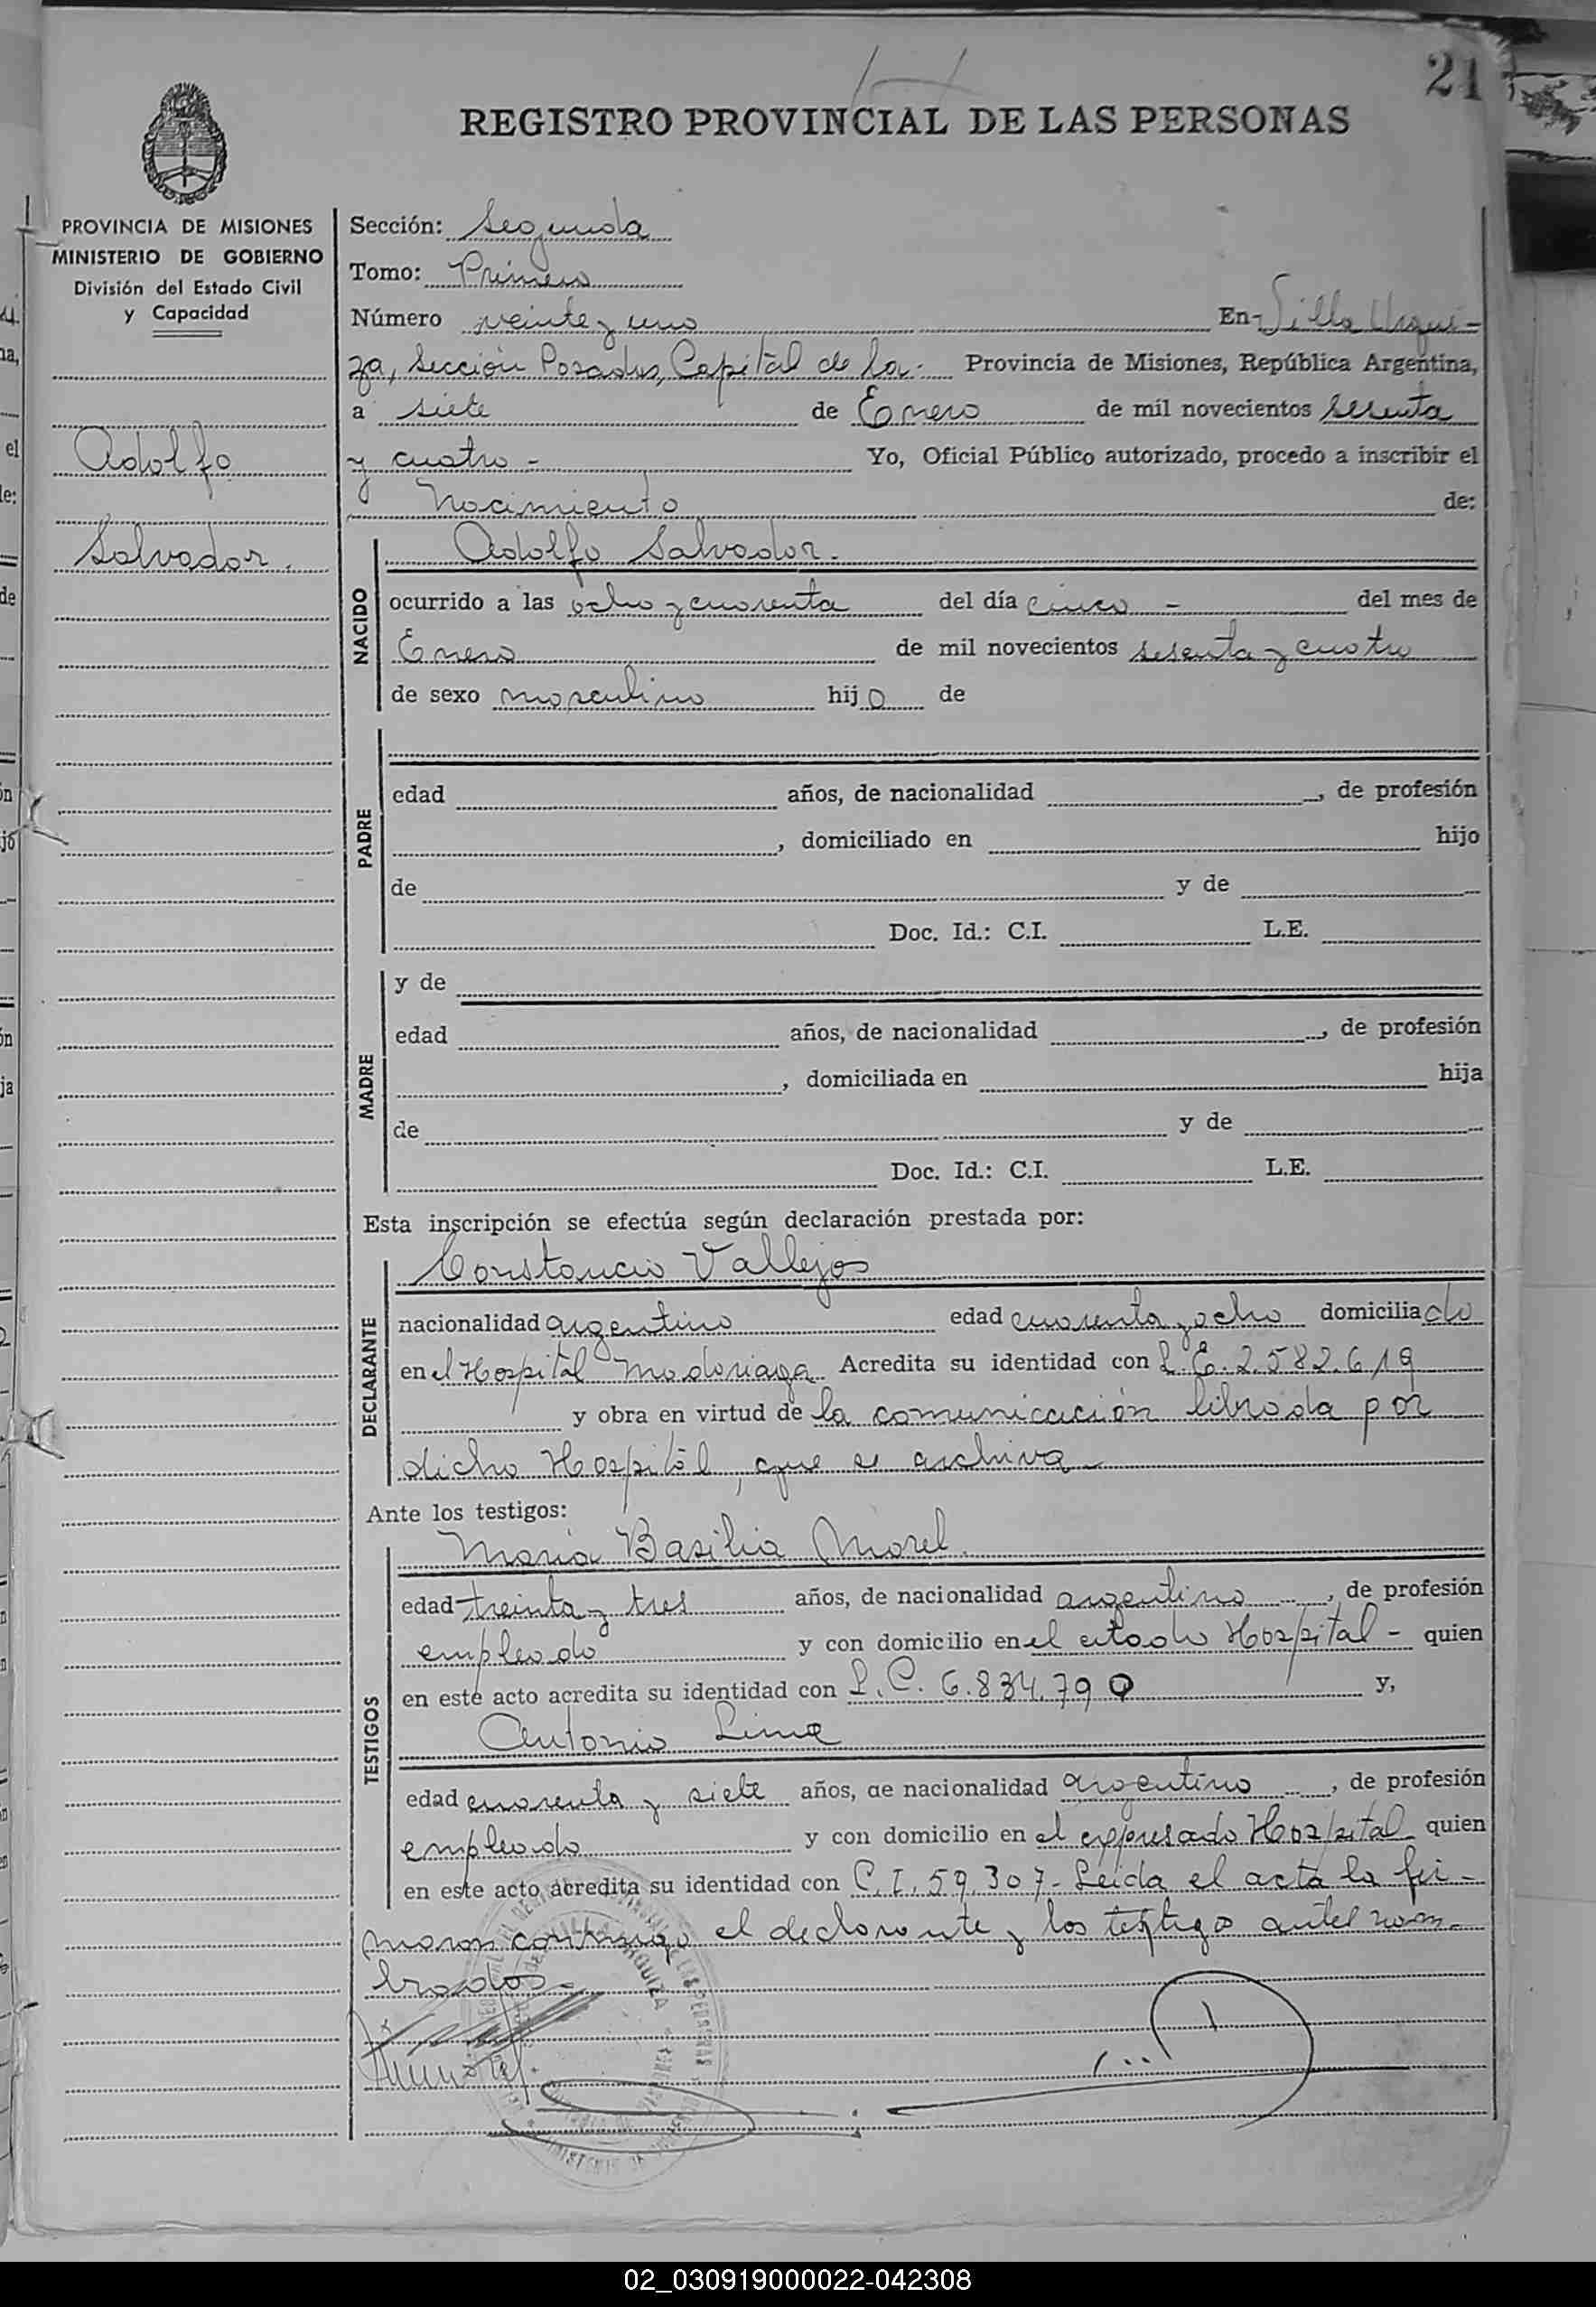 21
REGISTRO PROVINCIAL DE LAS PERSONAS
PROVINCIA DE MISIONES
MINISTERIO DE GOBIERNO
División del Estado Civil
y Capacidad
Adolfo
Salvador.
Sección: Segunda
Tomo: Primero
Número veinte y uno En Villa Urqui-
za, Sección Posadas, Capital de la Provincia de Misiones, República Argentina,
a siete de Enero de mil novecientos sesenta
y cuatro - Yo, Oficial Público autorizado, procedo a inscribir el
Nacimiento de:
NACIDO
Adolfo Salvador.
ocurrido a las ocho y cuarenta del día cinco - del mes de
Enero de mil novecientos sesenta y cuatro
de sexo masculino hijo de
PADRE
edad años, de nacionalidad , de profesión
, domiciliado en hijo
de y de
Doc. Id.: C.I. L.E.
MADRE
y de
edad años, de nacionalidad , de profesión
, domiciliada en hija
de y de
Doc. Id.: C.I. L.E.
Esta inscripción se efectúa según declaración prestada por:
DECLARANTE
Constancio Vallejos
nacionalidad argentino edad cuarenta y ocho domiciliado
en el Hospital Madariaga Acredita su identidad con L.E. 2.582.619
y obra en virtud de la comunicación librada por
dicho Hospital, que se archiva -
Ante los testigos:
TESTIGOS
Maria Basilia Morel.
edad treinta y tres años, de nacionalidad argentino , de profesión
empleado y con domicilio en el citado Hospital - quien
en este acto acredita su identidad con L.C. 6.834.790 y,
Antonio
edad cuarenta y siete años, de nacionalidad argentino , de profesión
empleado y con domicilio en el expresado Hospital quien
en este acto acredita su identidad con C.I. 59.307 - Leída el acta la fir-
maron conmigo el declarante y los testigos antes nom-
brados -
02_030919000022-042308